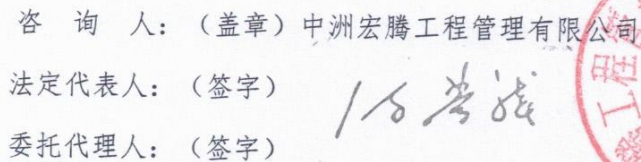 咨 询 人：（盖章）中洲宏腾工程管理有限公司
法定代表人：（签字）
委托代理人：（签字）
工程管